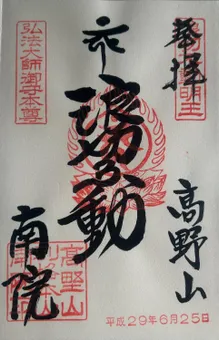 奉拝
高野山
浪切不動
南院
明王
弘法大師御守本尊
高野山
平成29年6月25日